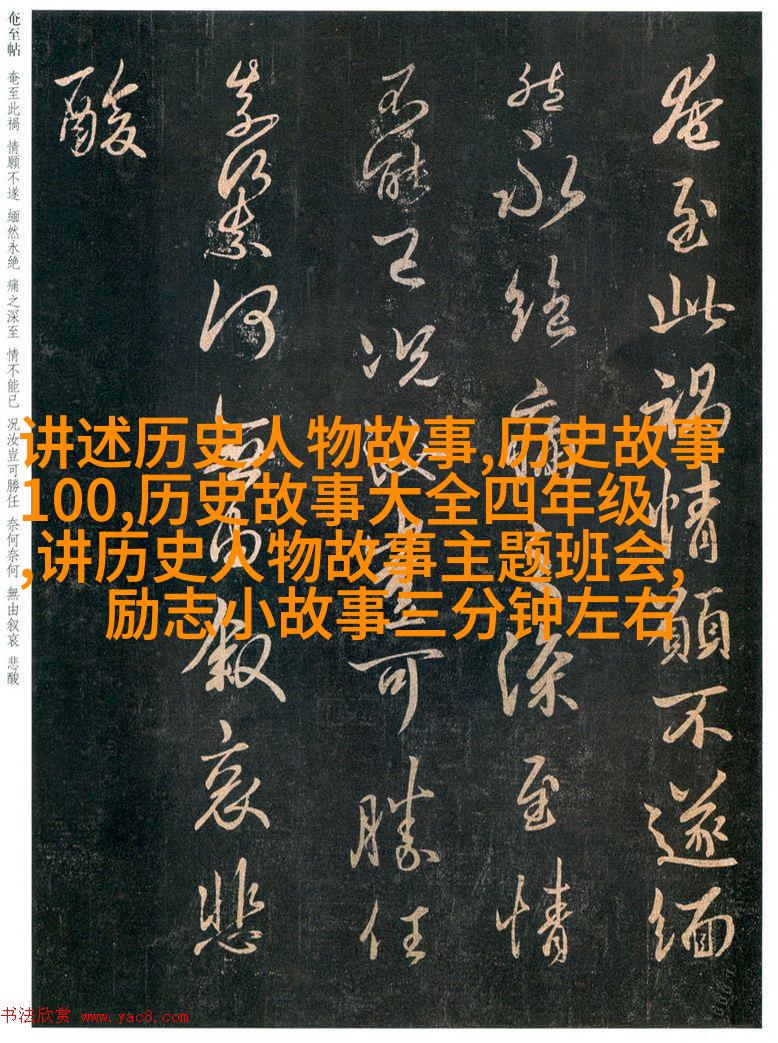 奄至此禍情願不遂緬
然永絶痛之深至情
不能已況汝豈可勝任
奈何奈何無由叙哀悲
酸
奄至帖 奄至此禍 情願不遂 緬然永絶 痛之深至 情不能已 况汝豈可勝任 奈何奈何 無由叙哀 悲酸
讲述历史人物故事,历史故事
100,历史故事大全四年级
,讲历史人物故事主题班会,
励志小故事三分钟左右
书法欣赏 www.yac8.com